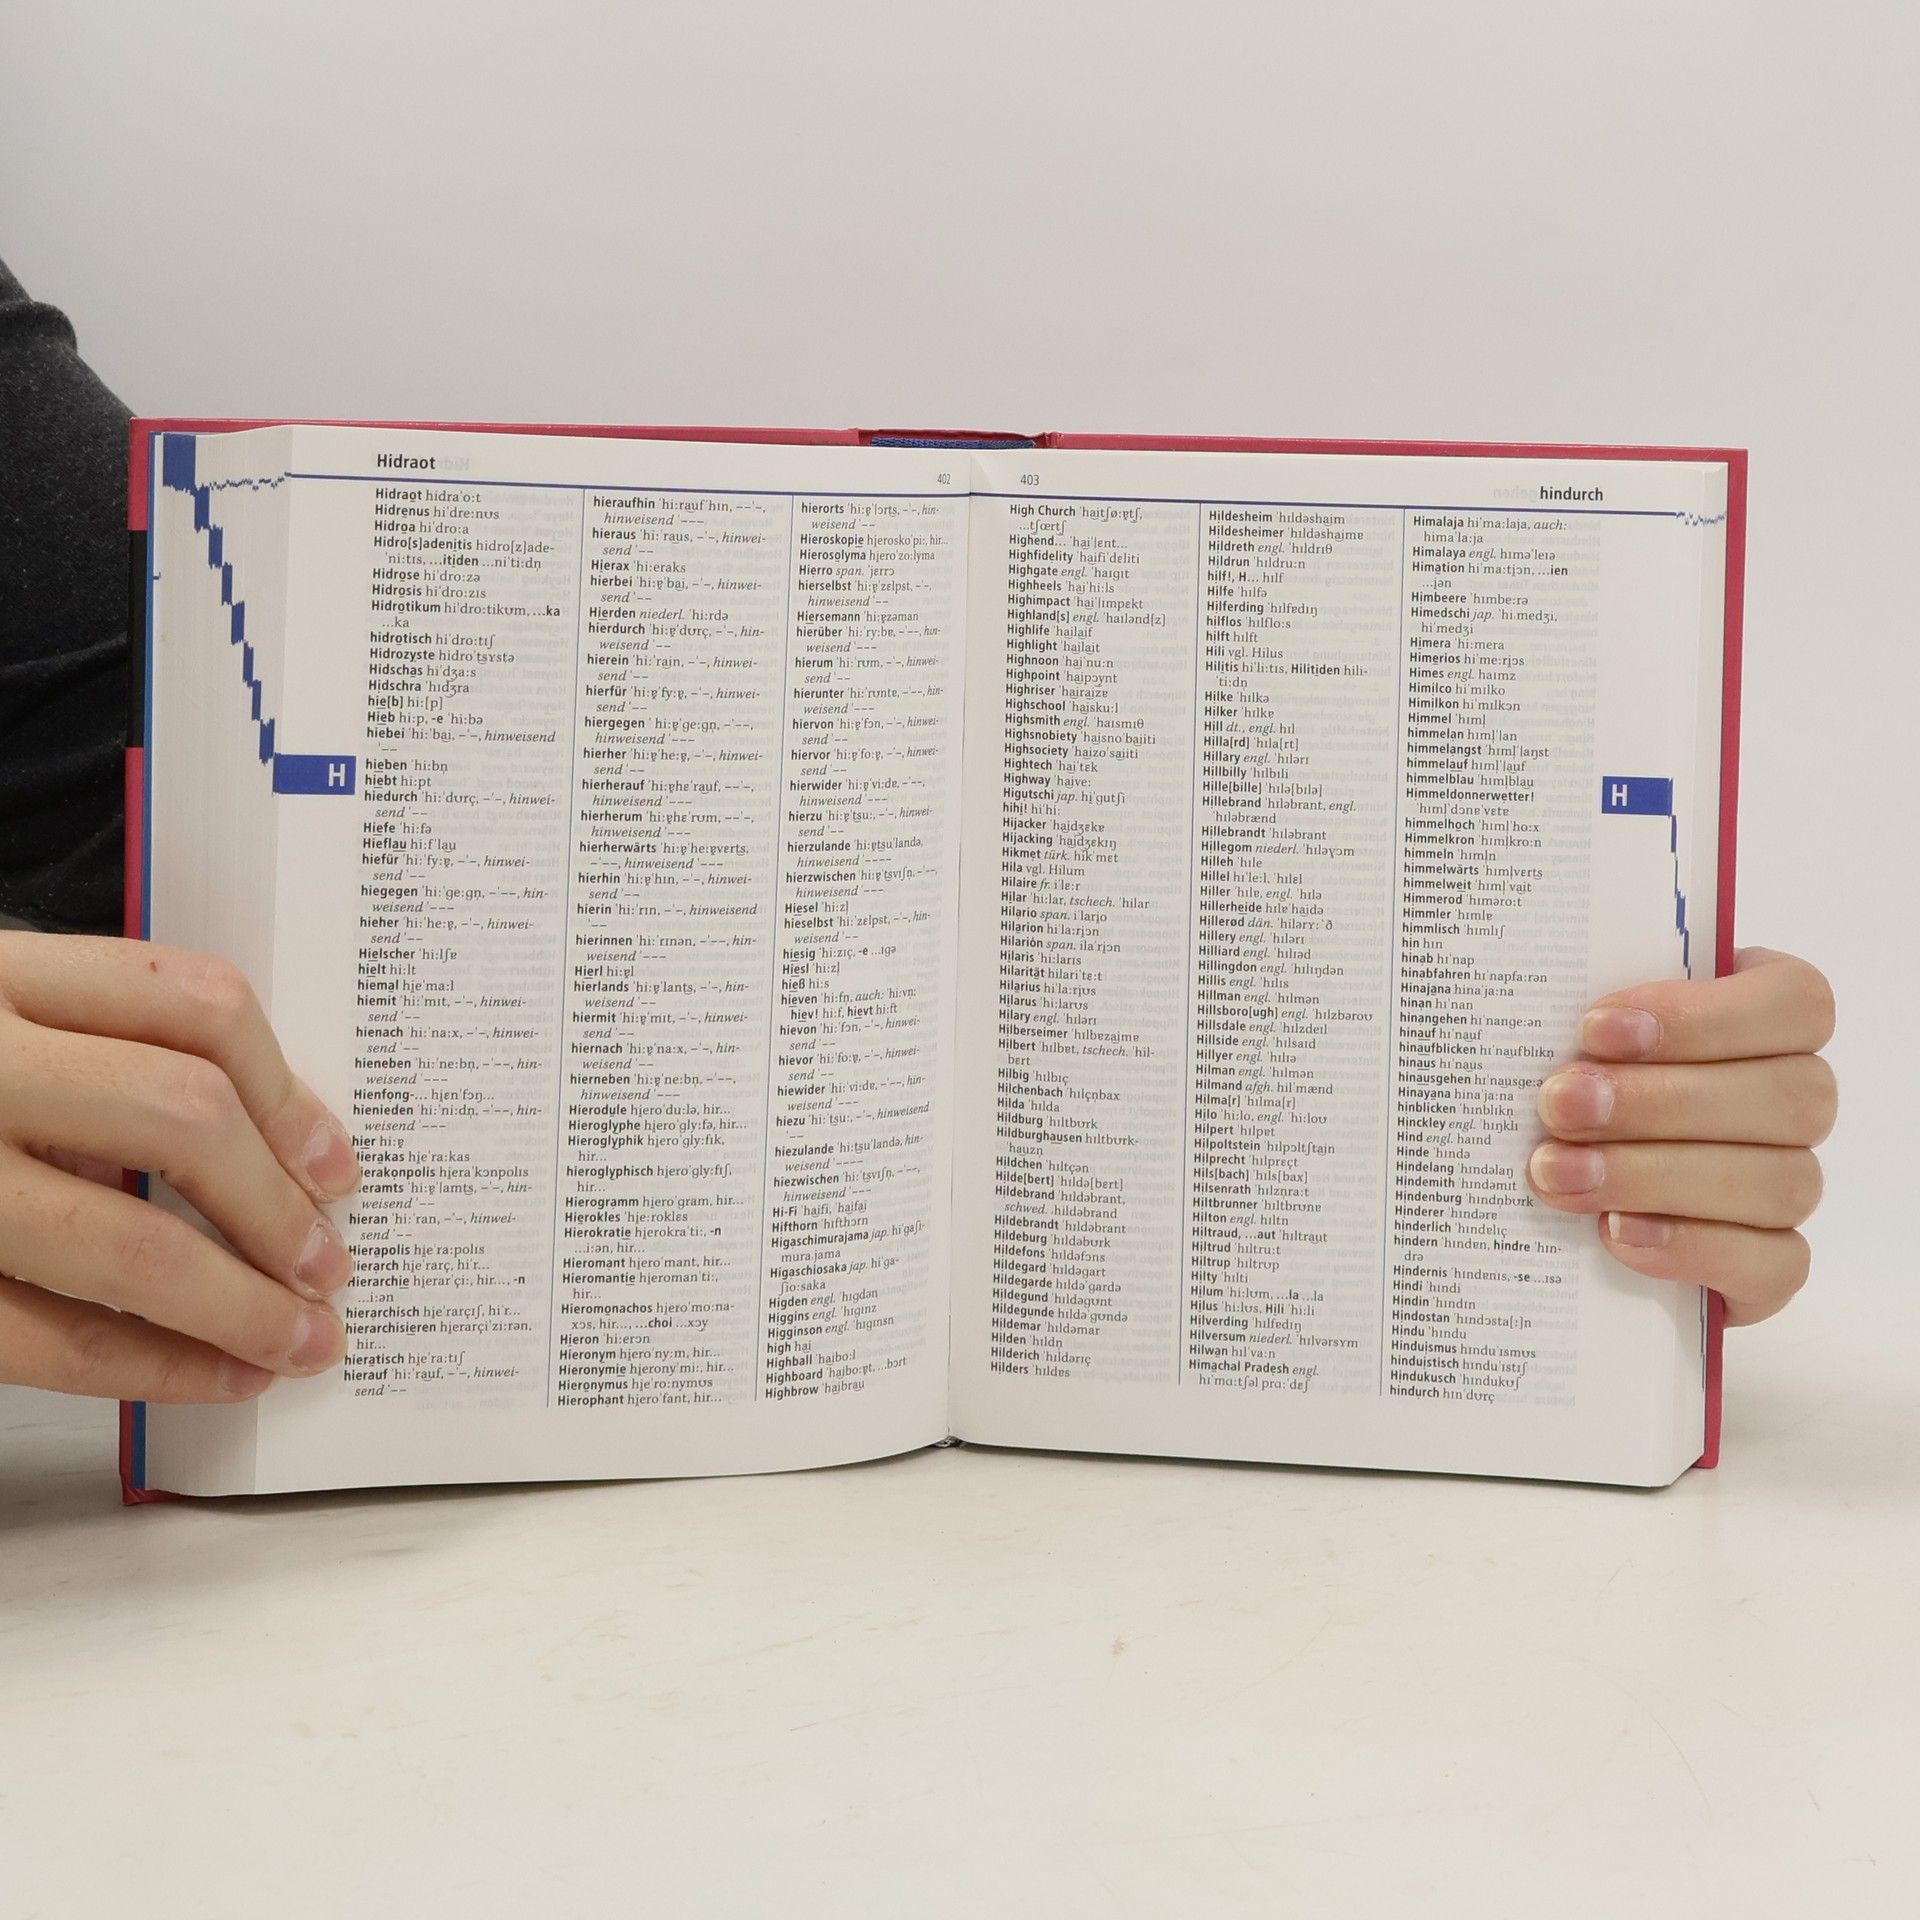 Hidraot
402
H
Hidraot hidraˈoːt
Hidrenus hiˈdreːnʊs
Hidroa hiˈdroːa
Hidro[s]adenitis hidro[z]ade-
ˈniːtɪs, ...itiden ...niˈtiːdn̩
Hidrose hiˈdroːzə
Hidrosis hiˈdroːzɪs
Hidrotikum hiˈdroːtikʊm, ...ka
...ka
hidrotisch hiˈdroːtɪʃ
Hidrozyste hidroˈtsʏstə
Hidschas hiˈdʒaːs
Hidschra ˈhɪdʒra
hie[b] hiː[p]
Hieb hiːp, -e ˈhiːbə
hiebei ˈhiːˈbai̯, –ˈ–, hinweisend
ˈ––
hieben ˈhiːbn̩
hiebt hiːpt
hiedurch ˈhiːˈdʊrç, –ˈ–, hinwei-
send ˈ––
Hiefe ˈhiːfə
Hieflau hiːfˈlau̯
hiefür ˈhiːˈfyːɐ̯, –ˈ–, hinwei-
send ˈ––
hiegegen ˈhiːˈɡeːɡn̩, –ˈ––, hin-
weisend ˈ–––
hieher ˈhiːˈheːɐ̯, –ˈ–, hinwei-
send ˈ––
Hielscher ˈhiːlʃɐ
hielt hiːlt
hiemal hi̯eˈmaːl
hiemit ˈhiːˈmɪt, –ˈ–, hinwei-
send ˈ––
hienach ˈhiːˈnaːx, –ˈ–, hinwei-
send ˈ––
hieneben ˈhiːˈneːbn̩, –ˈ––, hin-
weisend ˈ–––
Hienfong-... hi̯ɛnˈfɔŋ...
hienieden ˈhiːˈniːdn̩, –ˈ––, hin-
weisend ˈ–––
hier hiːɐ̯
ierakas hi̯eˈraːkas
ierakonpolis hi̯eraˈkɔnpolɪs
ieramts ˈhiːɐ̯ˈlamts, –ˈ–, hin-
weisend ˈ––
hieran ˈhiːˈran, –ˈ–, hinwei-
send ˈ––
Hierapolis hi̯eˈraːpolɪs
Hierarch hi̯eˈrarç, hiˈr...
Hierarchie hi̯erarˈçiː, hir..., -n
...iːən
hierarchisch hi̯eˈrarçɪʃ, hiˈr...
hierarchisieren hi̯erarçiˈziːrən,
hir...
hieratisch hi̯eˈraːtɪʃ
hierauf ˈhiːˈrau̯f, –ˈ–, hinwei-
send ˈ––
hieraufhin ˈhiːrau̯fˈhɪn, ––ˈ–,
hinweisend ˈ–––
hieraus ˈhiːˈrau̯s, –ˈ–, hinwei-
send ˈ––
Hierax ˈhiːeraks
hierbei ˈhiːɐ̯ˈbai̯, –ˈ–, hinwei-
send ˈ––
Hierden niederl. ˈhiːrdə
hierdurch ˈhiːɐ̯ˈdʊrç, –ˈ–, hin-
weisend ˈ––
hierein ˈhiːˈrai̯n, –ˈ–, hinwei-
send ˈ––
hierfür ˈhiːɐ̯ˈfyːɐ̯, –ˈ–, hinwei-
send ˈ––
hiergegen ˈhiːɐ̯ˈɡeːɡn̩, –ˈ––,
hinweisend ˈ–––
hierher ˈhiːɐ̯ˈheːɐ̯, –ˈ–, hinwei-
send ˈ––
hierherauf ˈhiːɐ̯hɛˈrau̯f, ––ˈ–,
hinweisend ˈ–––
hierherum ˈhiːɐ̯hɛˈrʊm, ––ˈ–,
hinweisend ˈ–––
hierherwärts ˈhiːɐ̯ˈheːɐ̯vɛrts,
–ˈ––, hinweisend ˈ–––
hierhin ˈhiːɐ̯ˈhɪn, –ˈ–, hinwei-
send ˈ––
hierin ˈhiːˈrɪn, –ˈ–, hinweisend
ˈ––
hierinnen ˈhiːˈrɪnən, –ˈ––, hin-
weisend ˈ–––
Hierl ˈhiːɐ̯l
hierlands ˈhiːɐ̯ˈlants, –ˈ–, hin-
weisend ˈ––
hiermit ˈhiːɐ̯ˈmɪt, –ˈ–, hinwei-
send ˈ––
hiernach ˈhiːɐ̯ˈnaːx, –ˈ–, hin-
weisend ˈ––
hierneben ˈhiːɐ̯ˈneːbn̩, –ˈ––,
hinweisend ˈ–––
Hierodule hi̯eroˈduːlə, hir...
Hieroglyphe hi̯eroˈɡlyːfə, hir...
Hieroglyphik hi̯eroˈɡlyːfɪk,
hir...
hieroglyphisch hi̯eroˈɡlyːfɪʃ,
hir...
Hierogramm hi̯eroˈɡram, hir...
Hierokles ˈhi̯eːrokles
Hierokratie hi̯erokraˈtiː, -n
...iːən, hir...
Hieromant hi̯eroˈmant, hir...
Hieromantie hi̯eromanˈtiː,
hir...
Hieromonachos hi̯eroˈmoːna-
xɔs, hir..., ...choi ...xɔy
Hieron ˈhiːerɔn
Hieronym hi̯eroˈnyːm, hir...
Hieronymie hi̯eronyˈmiː, hir...
Hieronymus hi̯eˈroːnymʊs
Hierophant hi̯eroˈfant, hir...
hierorts ˈhiːɐ̯ˈlɔrts, –ˈ–, hin-
weisend ˈ––
Hieroskopie hi̯eroskoˈpiː, hir...
Hierosolyma hi̯eroˈzoːlyma
Hierro span. ˈjɛrrɔ
hierselbst ˈhiːɐ̯ˈzɛlpst, –ˈ–,
hinweisend ˈ––
Hiersemann ˈhiːɐ̯zəman
hierüber ˈhiːˈryːbɐ, –ˈ––, hin-
weisend ˈ–––
hierum ˈhiːˈrʊm, –ˈ–, hinwei-
send ˈ––
hierunter ˈhiːˈrʊntɐ, –ˈ––, hin-
weisend ˈ–––
hiervon ˈhiːɐ̯ˈfɔn, –ˈ–, hinwei-
send ˈ––
hiervor ˈhiːɐ̯ˈfoːɐ̯, –ˈ–, hinwei-
send ˈ––
hierwider ˈhiːɐ̯ˈviːdɐ, –ˈ––,
hinweisend ˈ–––
hierzu ˈhiːɐ̯ˈtsuː, –ˈ–, hinwei-
send ˈ––
hierzulande ˈhiːɐ̯tsuˈlandə,
hinweisend ˈ––––
hierzwischen ˈhiːɐ̯ˈtsvɪʃn̩, –ˈ––,
hinweisend ˈ–––
Hiesel ˈhiːzl̩
hieselbst ˈhiːˈzɛlpst, –ˈ–, hin-
weisend ˈ––
hiesig ˈhiːzɪç, -e ...ɪɡə
Hiesl ˈhiːzl̩
hieß hiːs
hieven ˈhiːfn̩, auch: ˈhiːvn̩;
hiev! hiːf, hievt hiːft
hievon ˈhiːˈfɔn, –ˈ–, hinwei-
send ˈ––
hievor ˈhiːˈfoːɐ̯, –ˈ–, hinwei-
send ˈ––
hiewider ˈhiːˈviːdɐ, –ˈ––, hin-
weisend ˈ–––
hiezu ˈhiːˈtsuː, –ˈ–, hinweisend
ˈ––
hiezulande ˈhiːtsuˈlandə, hin-
weisend ˈ––––
hiezwischen ˈhiːˈtsvɪʃn̩, –ˈ––,
hinweisend ˈ–––
Hi-Fi ˈhai̯fi, ˈhai̯fai̯
Hifthorn ˈhɪfthɔrn
Higaschimurajama jap. hiˈɡaʃi-
muraˌjama
Higaschiosaka jap. hiˈɡa-
ʃioːsaka
Higden engl. ˈhɪɡdən
Higgins engl. ˈhɪɡɪnz
Higginson engl. ˈhɪɡɪnsn
high hai̯
Highball ˈhai̯boːl
Highboard ˈhai̯boːɐ̯t, ...bɔrt
Highbrow ˈhai̯brau̯
403
hindurch
H
High Church ˈhai̯tʃøːɐ̯tʃ,
...tʃœrtʃ
Highend... ˈhai̯ˈlɛnt...
Highfidelity ˈhai̯fiˈdɛliti
Highgate engl. ˈhaɪɡɪt
Highheels ˈhai̯ˈhiːls
Highimpact ˈhai̯ˈlɪmpɛkt
Highland[s] engl. ˈhaɪlənd[z]
Highlife ˈhai̯lai̯f
Highlight ˈhai̯lai̯t
Highnoon ˈhai̯ˈnuːn
Highpoint ˈhai̯pɔynt
Highriser ˈhai̯rai̯zɐ
Highschool ˈhai̯skuːl
Highsmith engl. ˈhaɪsmɪθ
Highsnobiety ˈhai̯snoˈbai̯iti
Highsociety ˈhai̯zoˈsai̯iti
Hightech ˈhai̯ˈtɛk
Highway ˈhai̯veː
Higutschi jap. hiˈɡutʃi
hihi! hiˈhiː
Hijacker ˈhai̯dʒɛkɐ
Hijacking ˈhai̯dʒɛkɪŋ
Hikmet türk. hikˈmɛt
Hila vgl. Hilum
Hilaire fr. iˈlɛːr
Hilar ˈhiːlar, tschech. ˈhilar
Hilario span. iˈlarjo
Hilarion hiˈlaːri̯ɔn
Hilarión span. ilaˈrjɔn
Hilaris ˈhiːlarɪs
Hilarität hilariˈtɛːt
Hilarius hiˈlaːri̯ʊs
Hilarus ˈhiːlarʊs
Hilary engl. ˈhɪlərɪ
Hilberseimer ˈhɪlbɐzai̯mɐ
Hilbert ˈhɪlbɐt, tschech. ˈhil-
bɛrt
Hilbig ˈhɪlbɪç
Hilchenbach ˈhɪlçn̩bax
Hilda ˈhɪlda
Hildburg ˈhɪltbʊrk
Hildburghausen hɪltbʊrk-
ˈhau̯zn̩
Hildchen ˈhɪltçən
Hilde[bert] ˈhɪldə[bɛrt]
Hildebrand ˈhɪldəbrant,
schwed. ˌhildəbrand
Hildebrandt ˈhɪldəbrant
Hildeburg ˈhɪldəbʊrk
Hildefons ˈhɪldəfɔns
Hildegard ˈhɪldəɡart
Hildegarde hɪldəˈɡardə
Hildegund ˈhɪldəɡʊnt
Hildegunde hɪldəˈɡʊndə
Hildemar ˈhɪldəmar
Hilden ˈhɪldn̩
Hilderich ˈhɪldərɪç
Hilders ˈhɪldɐs
Hildesheim ˈhɪldəshai̯m
Hildesheimer ˈhɪldəshai̯mɐ
Hildreth engl. ˈhɪldrɪθ
Hildrun ˈhɪldruːn
hilf!, H... hɪlf
Hilfe ˈhɪlfə
Hilferding ˈhɪlfɐdɪŋ
hilflos ˈhɪlfloːs
hilft hɪlft
Hili vgl. Hilus
Hilitis hiˈliːtɪs, Hilitiden hili-
ˈtiːdn̩
Hilke ˈhɪlkə
Hilker ˈhɪlkɐ
Hill dt., engl. hɪl
Hilla[rd] ˈhɪla[rt]
Hillary engl. ˈhɪlərɪ
Hillbilly ˈhɪlbɪli
Hille[bille] ˈhɪlə[bɪlə]
Hillebrand ˈhɪləbrant, engl.
ˈhɪləbrænd
Hillebrandt ˈhɪləbrant
Hillegom niederl. ˈhɪləɣɔm
Hilleh ˈhɪle
Hillel hiˈleːl, ˈhɪlɛl
Hiller ˈhɪlɐ, engl. ˈhɪlə
Hillerheide hɪlɐˈhai̯də
Hillerød dän. ˈhiləryːˈð
Hillery engl. ˈhɪlərɪ
Hilliard engl. ˈhɪlɪəd
Hillingdon engl. ˈhɪlɪŋdən
Hillis engl. ˈhɪlɪs
Hillman engl. ˈhɪlmən
Hillsboro[ugh] engl. ˈhɪlzbəroʊ
Hillsdale engl. ˈhɪlzdeɪl
Hillside engl. ˈhɪlsaɪd
Hillyer engl. ˈhɪlɪə
Hilman engl. ˈhɪlmən
Hilmand afgh. hilˈmænd
Hilma[r] ˈhɪlma[r]
Hilo ˈhiːlo, engl. ˈhiːloʊ
Hilpert ˈhɪlpɐt
Hilpoltstein ˈhɪlpɔltʃtai̯n
Hilprecht ˈhɪlprɛçt
Hils[bach] ˈhɪls[bax]
Hilsenrath ˈhɪlzn̩raːt
Hiltbrunner ˈhɪltbrʊnɐ
Hilton engl. ˈhɪltn
Hiltraud, ...aut ˈhɪltrau̯t
Hiltrud ˈhɪltruːt
Hiltrup ˈhɪltrʊp
Hilty ˈhɪlti
Hilum ˈhiːlʊm, ...la ...la
Hilus ˈhiːlʊs, Hili ˈhiːli
Hilverding ˈhɪlfɐdɪŋ
Hilversum niederl. ˈhɪlvərsʏm
Hilwan hɪlˈvaːn
Himachal Pradesh engl.
hɪˈmɑːtʃəl prɑːˈdɛʃ
Himalaja hiˈmaːlaja, auch:
himaˈlaːja
Himalaya engl. hɪməˈleɪə
Himation hiˈmaːti̯ɔn, ...ien
...i̯ən
Himbeere ˈhɪmbeːrə
Himedschi jap. ˈhiˌmedʒi,
hiˈmedʒi
Himera ˈhiːmera
Himerios hiˈmeːri̯ɔs
Himes engl. haɪmz
Himilco hiˈmɪlko
Himilkon hiˈmɪlkɔn
Himmel ˈhɪml̩
himmelan hɪml̩ˈlan
himmelangst ˈhɪml̩ˈlaŋst
himmelauf hɪml̩ˈlau̯f
himmelblau ˈhɪml̩blau̯
Himmeldonnerwetter!
ˈhɪml̩ˈdɔnɐˈvɛtɐ
himmelhoch ˈhɪml̩ˈhoːx
Himmelkron ˈhɪml̩kroːn
himmeln ˈhɪml̩n
himmelwärts ˈhɪml̩vɛrts
himmelweit ˈhɪml̩ˈvai̯t
Himmerod ˈhɪməroːt
Himmler ˈhɪmlɐ
himmlisch ˈhɪmlɪʃ
hin hɪn
hinab hɪˈnap
hinabfahren hɪˈnapfaːrən
Hinajana hinaˈjaːna
hinan hɪˈnan
hinangehen hɪˈnanɡeːən
hinauf hɪˈnau̯f
hinaufblicken hɪˈnau̯fblɪkn̩
hinaus hɪˈnau̯s
hinausgehen hɪˈnau̯sɡeːə
Hinayana hinaˈjaːna
hinblicken ˈhɪnblɪkn̩
Hinckley engl. ˈhɪŋklɪ
Hind engl. haɪnd
Hinde ˈhɪndə
Hindelang ˈhɪndəlaŋ
Hindemith ˈhɪndəmɪt
Hindenburg ˈhɪndn̩bʊrk
Hinderer ˈhɪndərɐ
hinderlich ˈhɪndɐlɪç
hindern ˈhɪndɐn, hindre ˈhɪn-
drə
Hindernis ˈhɪndɐnɪs, -se ...ɪsə
Hindi ˈhɪndi
Hindin ˈhɪndɪn
Hindostan ˈhɪndɔsta[ː]n
Hindu ˈhɪndu
Hinduismus hɪnduˈɪsmʊs
hinduistisch hɪnduˈɪstɪʃ
Hindukusch ˈhɪndukʊʃ
hindurch hɪnˈdʊrç